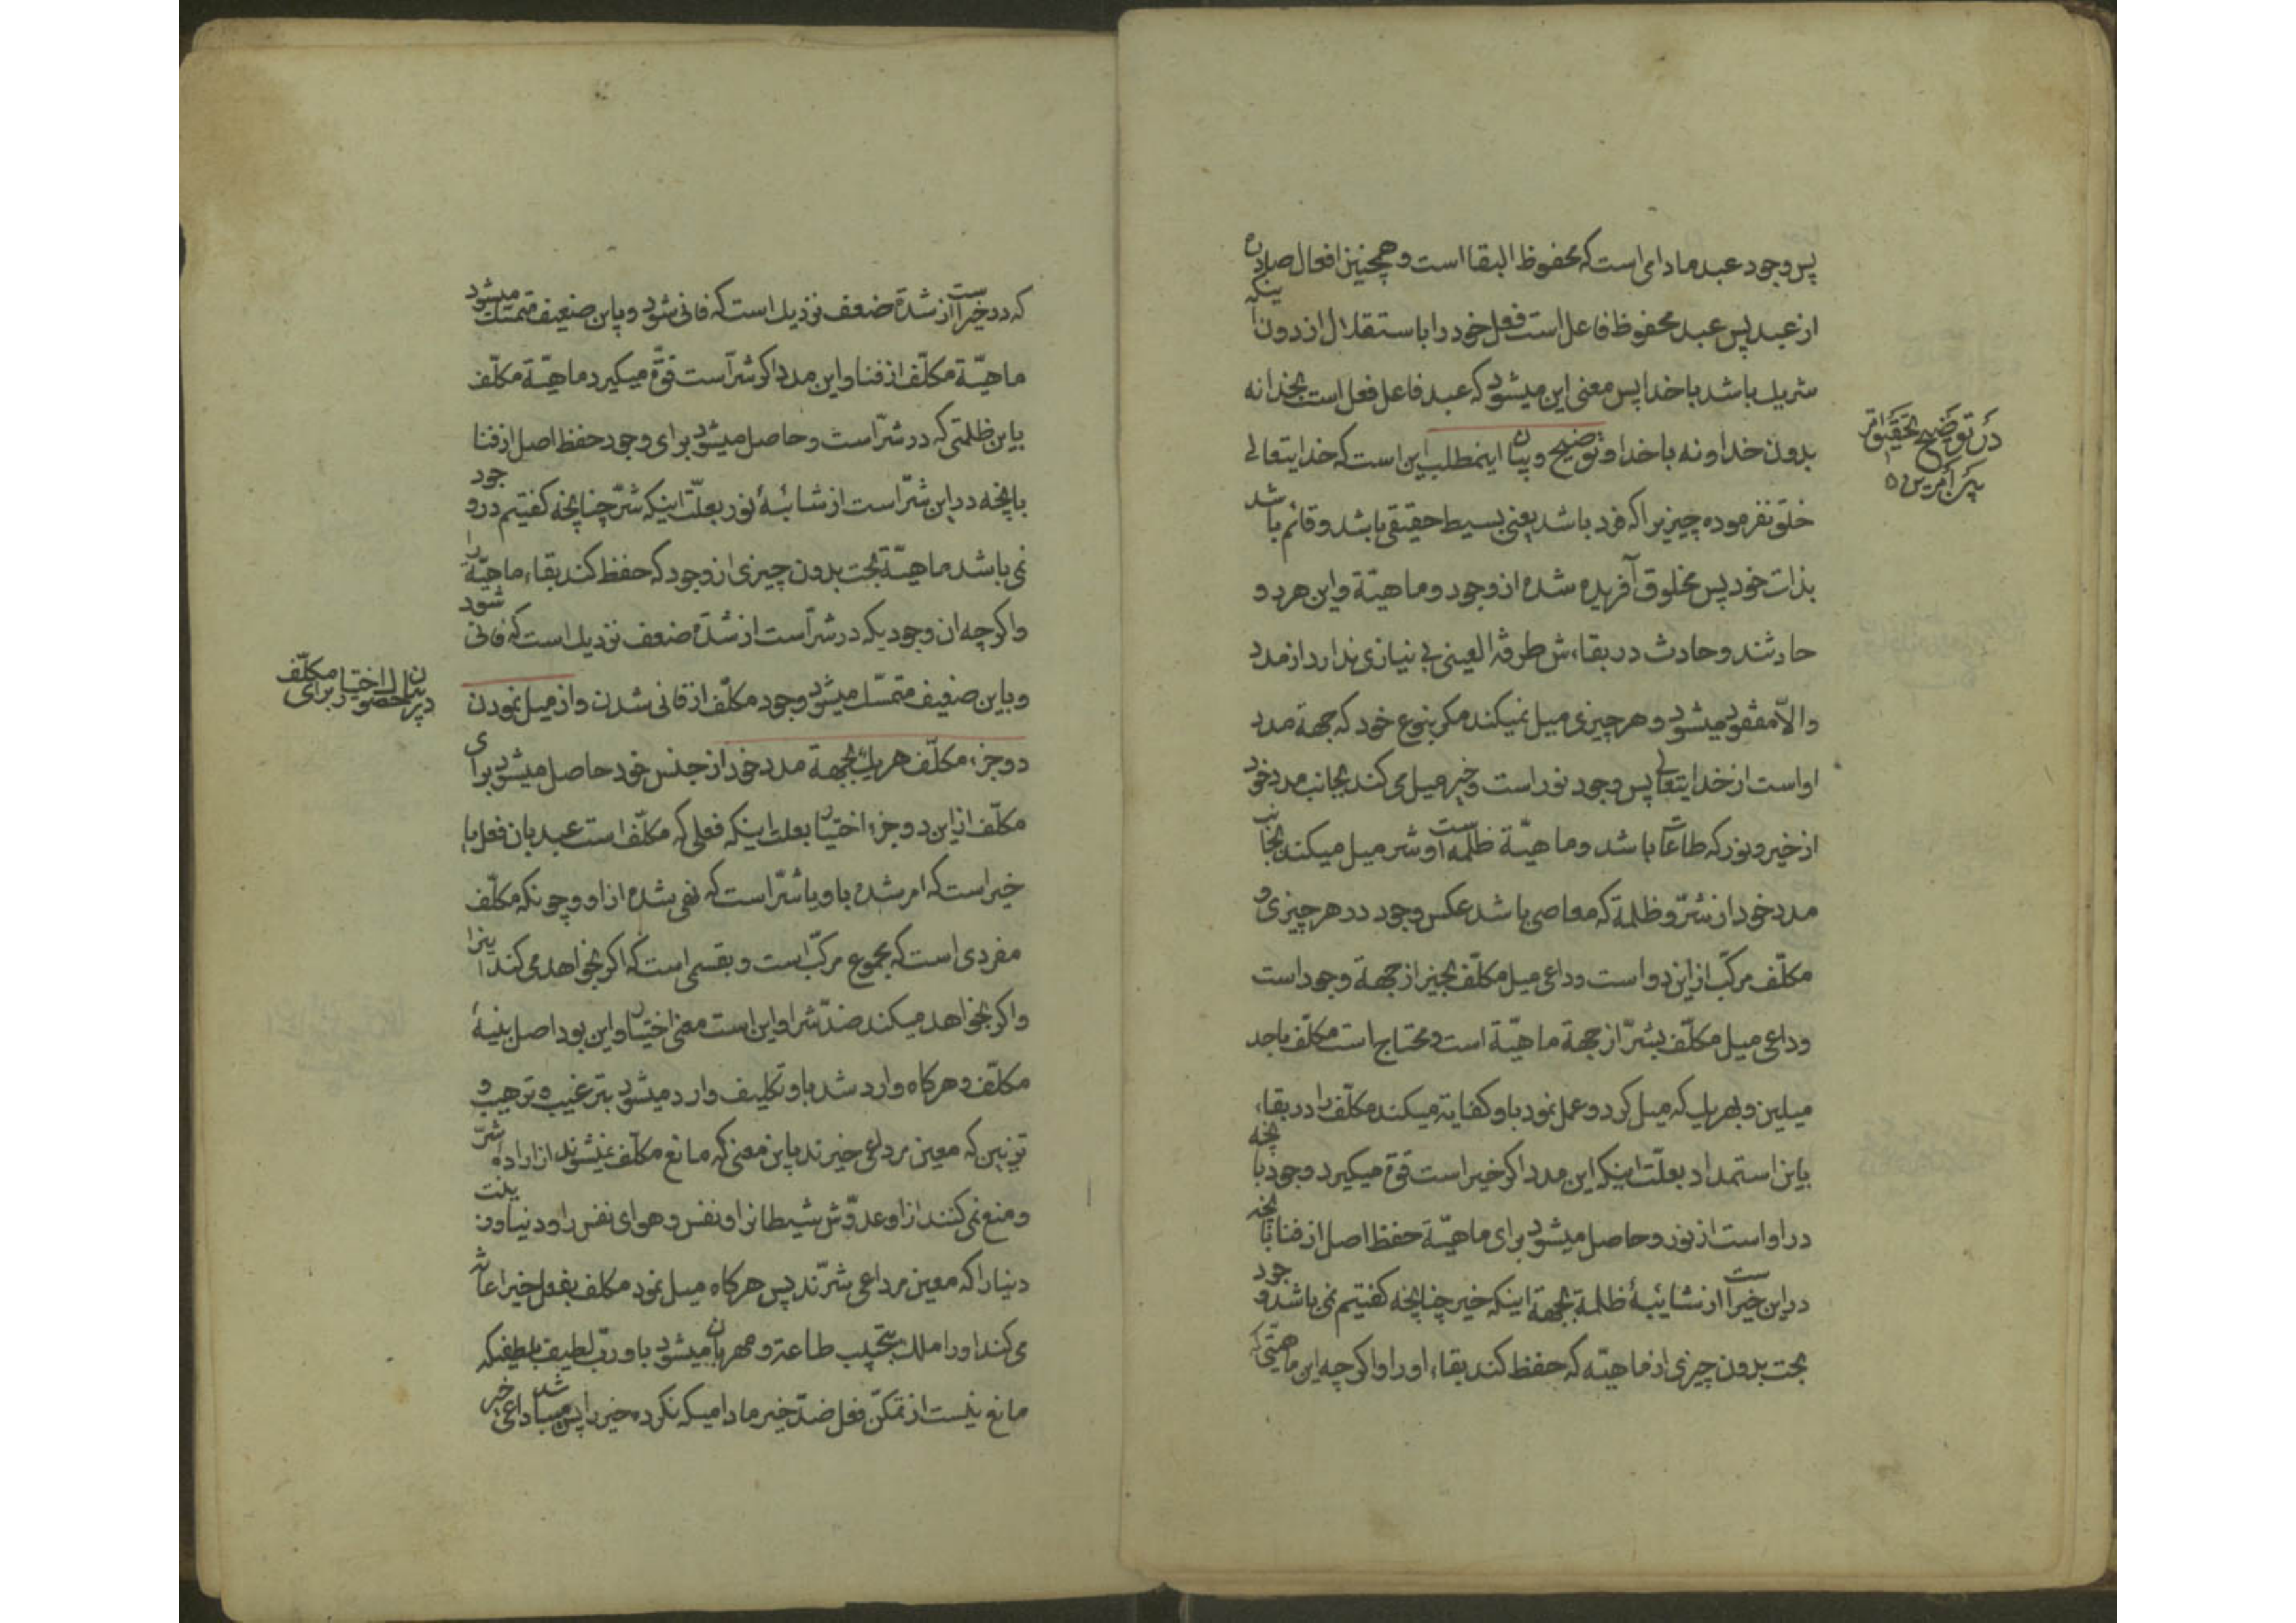 پس وجود عبد مادامی است که محفوظ البقا است و همچنین افعال صادره
از عبد پس عبد محفوظ فاعل است فعل خود را باستقلال از دون اینکه
شریك باشد با خدا پس معنی این میشود که عبد فاعل فعل است بخدا نه
بدون خدا و نه با خدا و توضیح و بیان اینمطلب این است که خدایتعالی
خلق نفرموده چیزیرا که فرد باشد یعنی بسیط حقیقی باشد و قائم باشد
بذات خود پس مخلوق آفریده شده از وجود و ماهیّة و این هر دو
حادثند و حادث در بقاءش طرفة العینی بی نیازی ندارد از مدد
والاّ مفقود میشود و هر چیزی میل نمیکند مکر بنوع خود که جهة مدد
او است از خدایتعالی پس وجود نور است و خیر میل می کند بجانب مدد خود
از خیر و نور که طاعات باشد و ماهیّة ظلمة است و شر میل میکند بجانب
مدد خود از شرّ و ظلمة که معاصی باشد عکس وجود در هر چیزی و
مکلّف مرکّب از این دو است و داعی میل مکلّف بخیر از جهة وجود است
و داعی میل مکلّف بشرّ از جهة ماهیّة است و محتاج است مکلّف باحد
میلین و بهر یك که میل کرد و عمل نمود باو کفایة میکند مکلّف را در بقاء،
باین استمداد بعلّت اینکه این مدد اکر خیر است قوّة میکیرد وجود بانچه
در او است از نور و حاصل میشود برای ماهیّة حفظ اصل از فنا بانچه
در این خیر است از شائبۀ ظلمة بجهة اینکه خیر چنانچه کفتیم نمی باشد وجود
بحت بدون چیزی از ماهیّه که حفظ کند بقاء او را و اکر چه این ماهیّتی که
در توضیح تحقیق امر
بین امرین
که در خیر است از شدّة ضعف نزدیك است که فانی شود و باین ضعیف متمسّك میشود
ماهیّة مکلّف از فنا و این مدد اکر شرّ است قوّة میکیرد ماهیّة مکلّف
باین ظلمتی که در شرّ است و حاصل میشود برای وجود حفظ اصل از فنا
بانچه در این شرّ است از شائبۀ نور بعلّت اینکه شرّ چنانچه کفتیم در وجود
نمی باشد ماهیّة بحت بدون چیزی از وجود که حفظ کند بقاء ماهیّة را
و اکر چه ان وجودیکه در شرّ است از شدّة ضعف نزدیك است که فانی شود
و باین ضعیف متمسّك میشود وجود مکلّف از فانی شدن و از میل نمودن
دو جزء مکلّف هر یك بجهة مدد خود از جنس خود حاصل میشود برای
مکلّف از این دو جزء اختیار بعلت اینکه فعلی که مکلّف است عبد بان فعل یا
خیر است که امر شده باو یا شرّ است که نهی شده از او و چونکه مکلّف
مفردی است که مجموع مرکّب است و بقسمی است که اکر بخواهد می کند اینرا
و اکر بخواهد میکند ضدّ شرا و این است معنی اختیار و این بود اصل بنیۀ
مکلّف و هر کاه وارد شد باو تکلیف وارد میشود بترغیب و ترهیب و
تزیین که معین بر داعی خیرند باین معنی که مانع مکلّف نمیشوند از اراده شرّ
و منع نمی کنند از او عدوّش شیطان را و نفس و هوای نفس را و دنیا و زینت
دنیا را که معین بر داعی شرّند پس هر کاه میل نمود مکلف بفعل خیر اعانة
می کند او را ملك بتحبیب طاعة و مهربان میشود باو ربّ لطیف بلطفیکه
مانع نیست از تمکّن فعل ضدّ خیر مادامیکه نکرده خیر را پس داعی خیر
در بیان حصول اختیار برای مکلّف